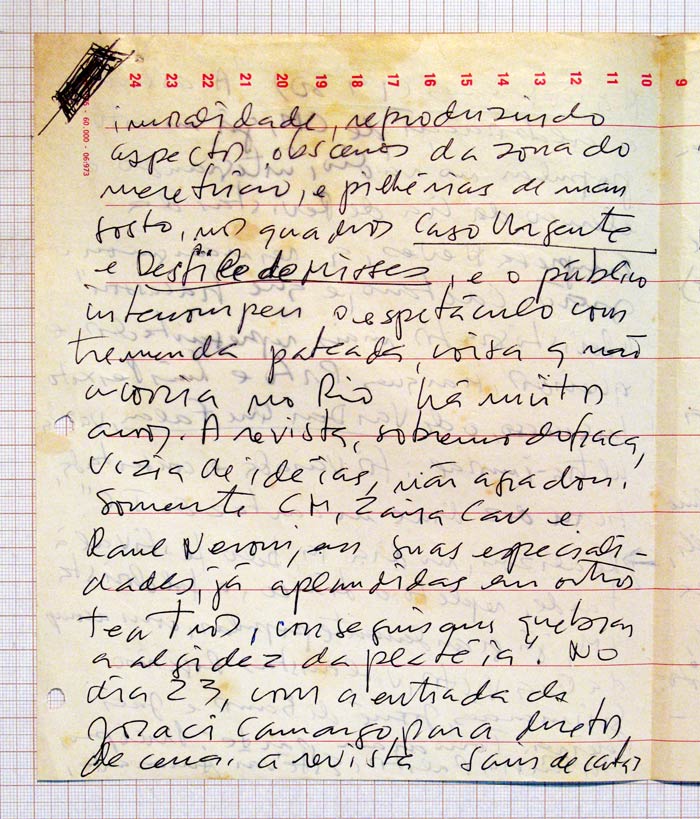 24 23 22 21 20 19 18 17 16 15 14 13 12 11 10 9
60.000 - 06-973
imoralidade, reproduzindo
aspectos obscenos da zona do
meretrício, e pilhérias de mau
gosto, nos quadros Caso Urgente
e Desfile de Misses, e o público
interrompeu o espetáculo com
tremenda pateada, coisa q não
ocorria no Rio há muitos
anos. A revista, sobremodo fraca,
vazia de idéias, não agradou.
Somente CM, Zaira Cav e
Raul Neroni, em suas especiali-
dades, já aplaudidas em outros
teatros, conseguiram quebrar
a algidez da platéia". No
dia 23, com a entrada de
Joraci Camargo, para diretor
de cena, a revista saiu de cartaz